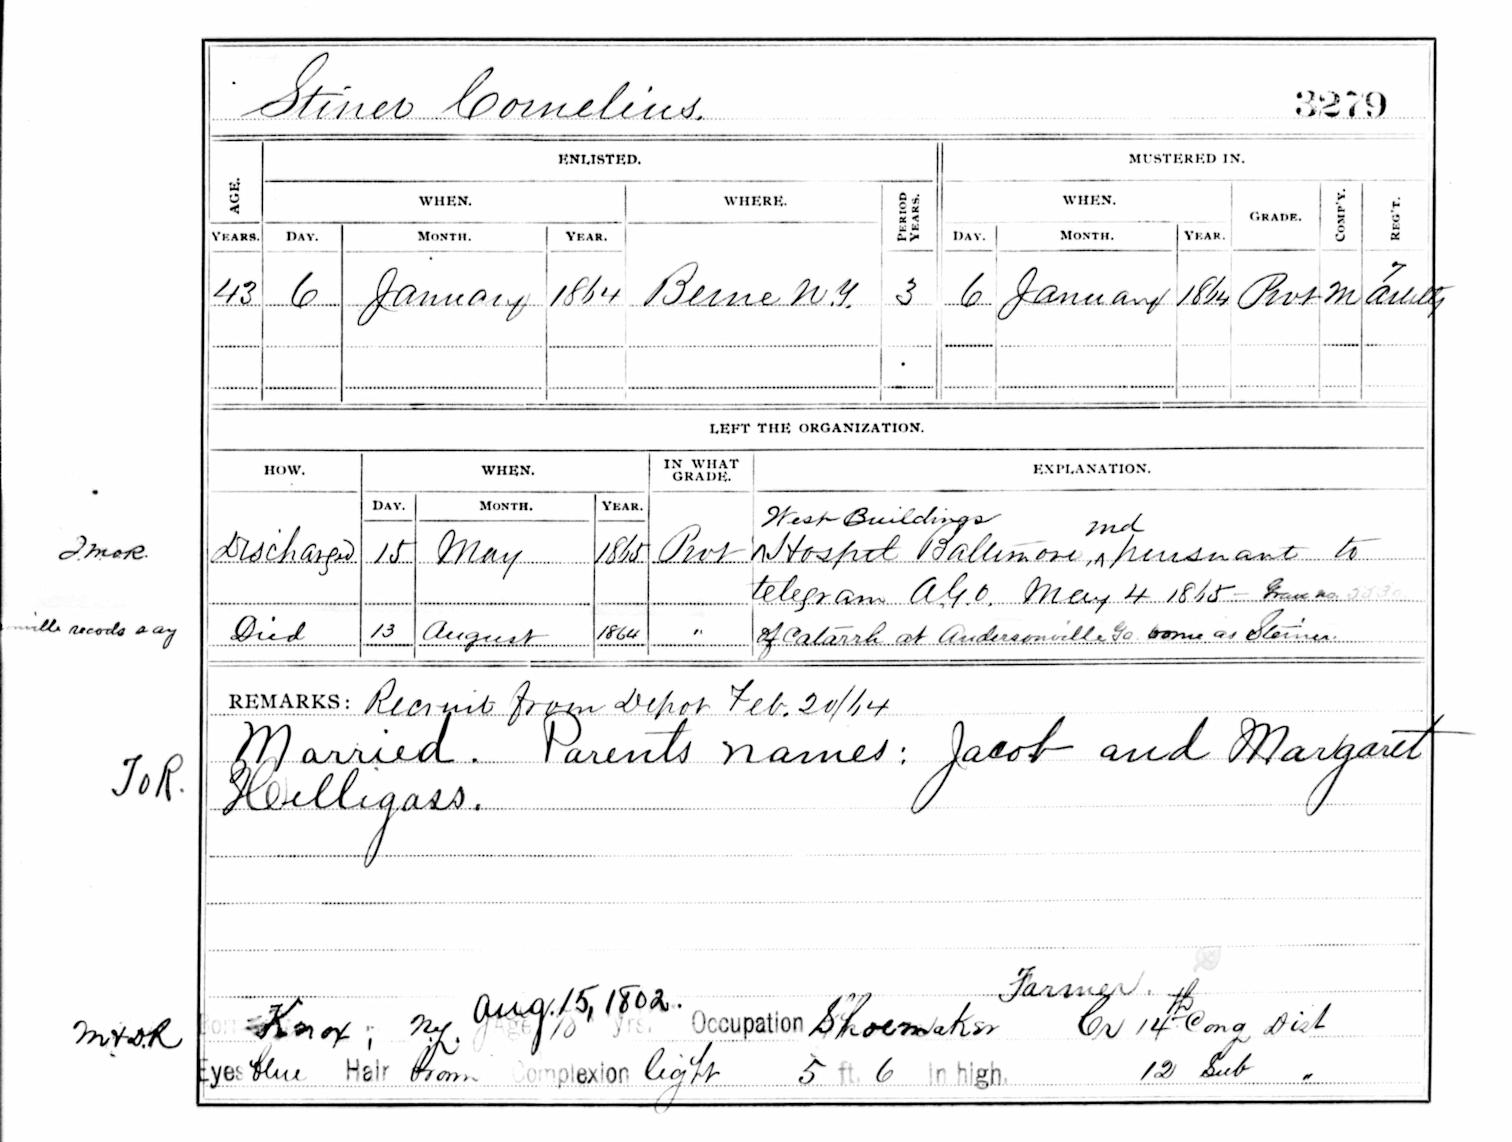 Stiner Cornelius. 3279
ENLISTED. MUSTERED IN.
AGE. WHEN. WHERE. PERIOD YEARS. WHEN. GRADE. COMP'Y. REG'T.
YEARS. DAY. MONTH. YEAR. DAY. MONTH. YEAR.
43 6 January 1864 Berne N.Y. 3 6 January 1864 Pvt M 7 Artilly
LEFT THE ORGANIZATION.
HOW. WHEN. IN WHAT GRADE. EXPLANATION.
DAY. MONTH. YEAR.
West Buildings md
Discharged 15 May 1865 Pvt Hospt Baltimore, pursuant to
telegram A.G.O. May 4 1865 –
ville records say Died 13 August 1864 " of Catarrh at Andersonville Ga. borne as Steiner.
REMARKS: Recruit from Depot Feb. 20/64
Married. Parents names: Jacob and Margaret
J o R. Hilligass.
Aug. 15, 1802. Farmer.
M & D.R Born Knox; N.Y. Age yrs. Occupation Shoemaker Cr 14th Cong Dist
Eyes blue Hair brown Complexion light 5 ft. 6 in high. 12 Sub "